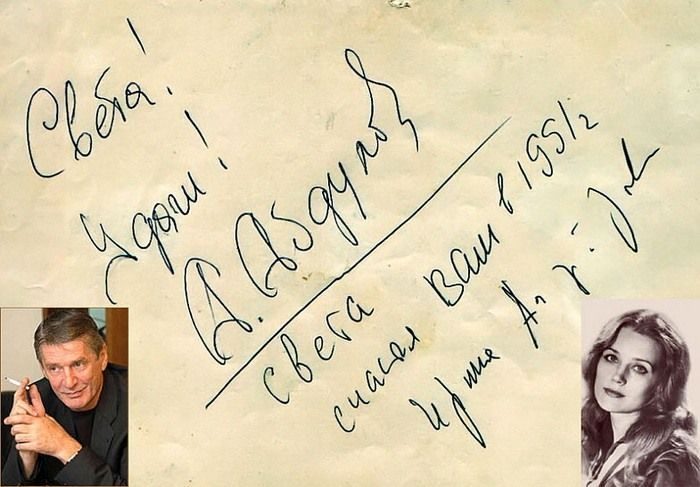 Света!
Удачи!
А. Абдулов
Света
счастья Вам в
Ирина